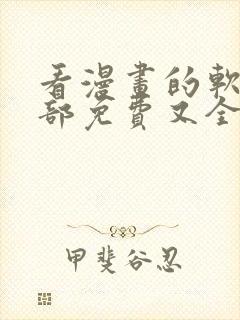 看漫畫的軟
部免費又全
甲斐谷忍